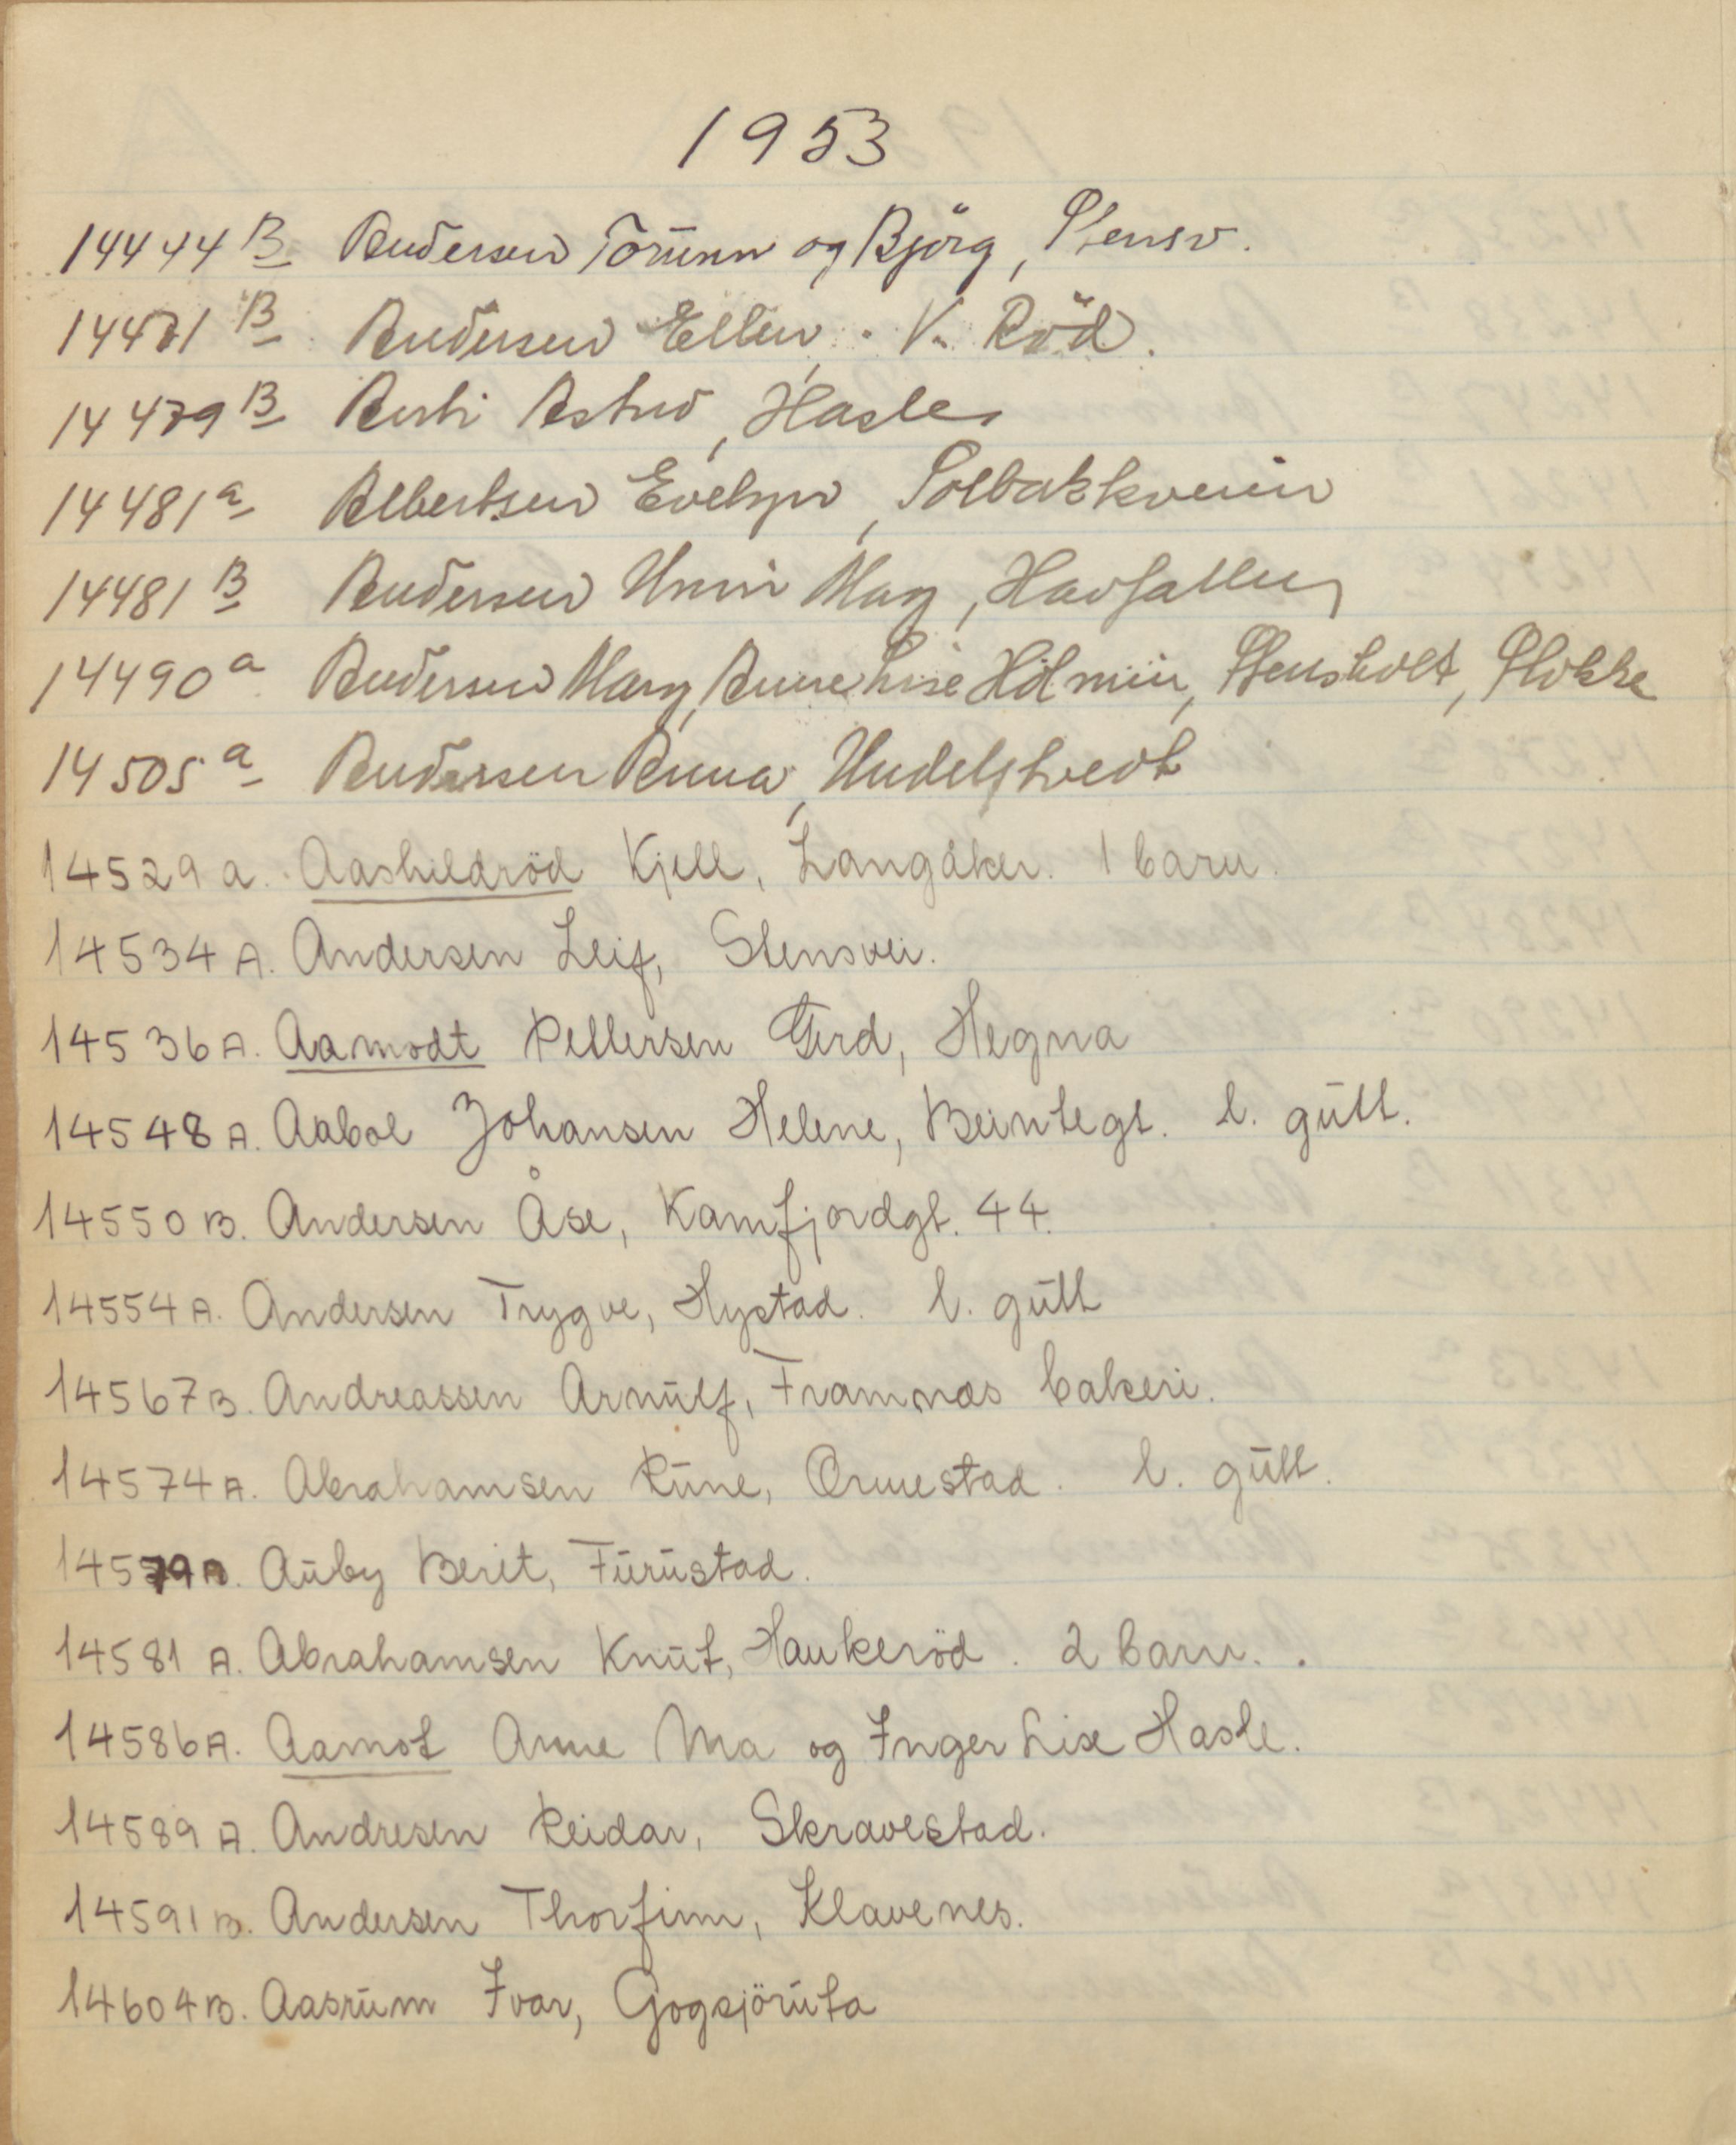 1953
14444 B Andersen Torunn og Björg, Stensv.
14471 B Andersen Ellen, V. Röd.
14479 B Astrid, Hasle
14481 a Albertsen Evelyn, Solbakkveien
14481 B Andersen Unni May, Havfallen
14490 a Andersen Mary, Anne Lise Stensholt, Stokke
14505 a Andersen Anna, Undelstvedt
14529 a. Aashildröd Kjell, Langåker. 1 barn.
14534 A. Andersen Leif, Stensvei.
14536 A. Aamodt Pettersen Gerd, Hegna
14548 A. Aabol Johansen Helene, Beintegt. l. gutt.
14550 B. Andersen Åse, Kamfjordgt. 44.
14554 A. Andersen Trygve, Hystad. l. gutt
14567 B. Andreassen Arnulf, Framnæs bakeri.
14574 A. Abrahamsen Rune, Ormestad. l. gutt.
14579 Auby Berit, Furustad.
14581 A. Abrahamsen Knut, Haukeröd. 2 barn.
14586 A. Aamot Anne Ma og Inger Lise Hasle.
14589 A. Andresen Reidar, Skravestad.
14591 B. Andersen Thorfinn, Klavenes.
14604 B. Aasrum Ivar, Gogsjöruta